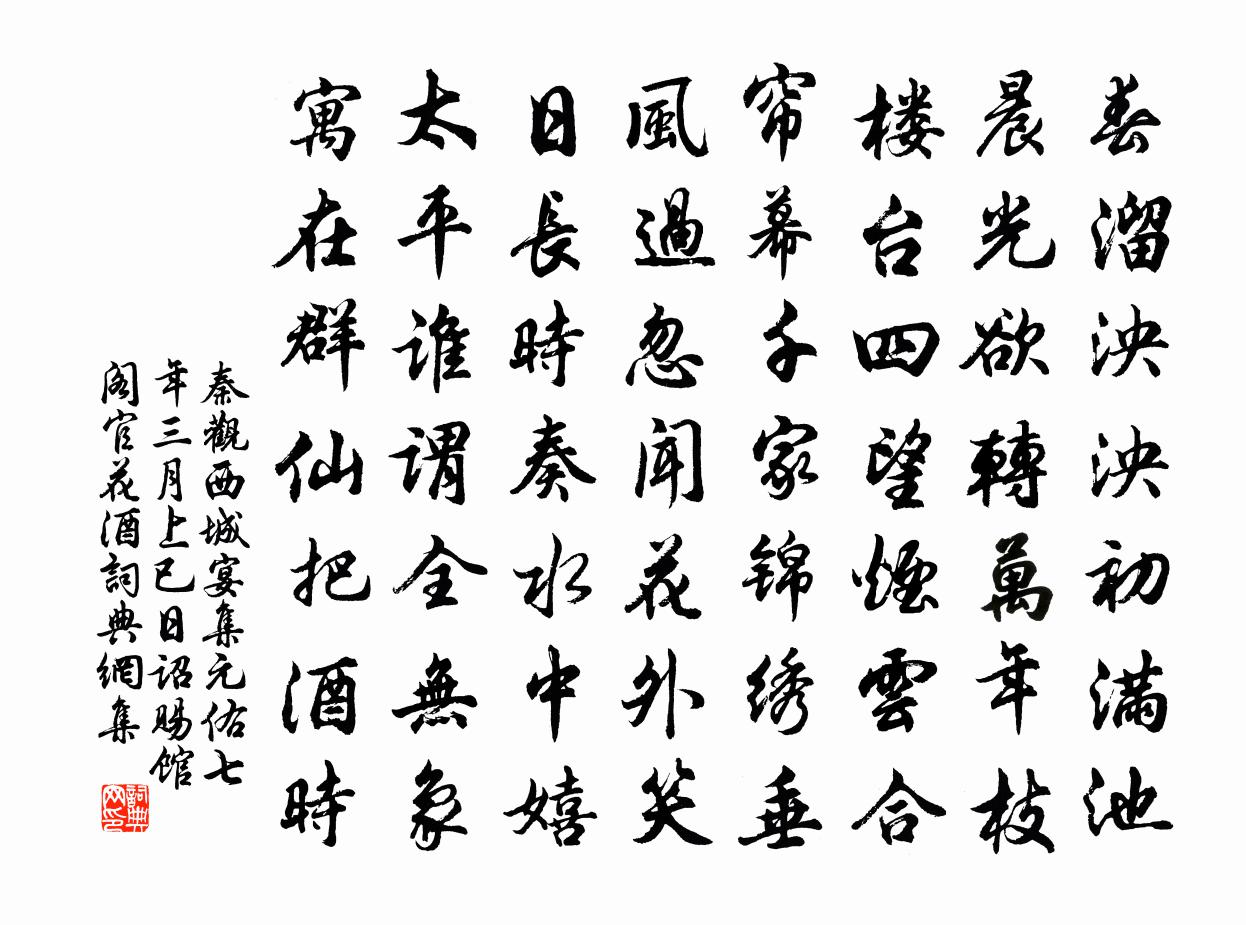 春溜泱泱初满池
晨光欲轉萬年枝
楼台四望煙雲合
帘幕千家锦绣垂
風過忽闻花外笑
日長時奏水中嬉
太平谁謂全無象
寓在群仙把酒時
秦觀西城宴集元佑七
年三月上巳日诏赐馆
阁官花酒詞典網集
詞典网印